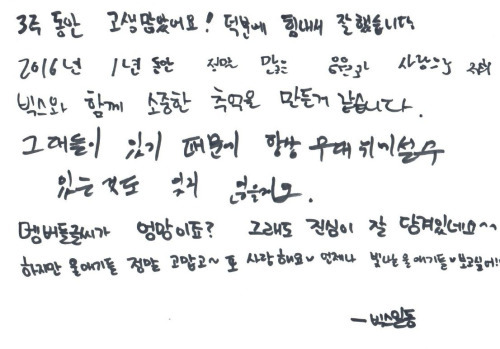 3주 동안 고생많았어요! 덕분에 힘내서 잘했습니다
2016년 1년 동안 정말 많은 응원과 사랑으로 저희
빅스와 함께 소중한 추억을 만든거 같습니다.
그대들이 있기 때문에 항상 무대위에설수
있는것도 잊지
멤버들글씨가 엉망이죠? 그래도 진심이 잘 담겨있네요~~
하지만 울애기들 정말 고맙고~ 또 사랑해요♥ 언제나 빛나는 울애기들♥보고싶어!!
- 빅스일동